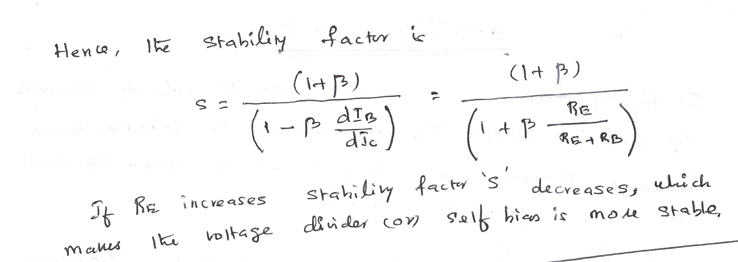 Hence, the stability factor is
S = (1+β) / (1 - β dIB/dIc) = (1+β) / (1 + β RE/(RE+RB))
If RE increases stability factor 's' decreases, which
makes the voltage divider (or) self bias is more stable,